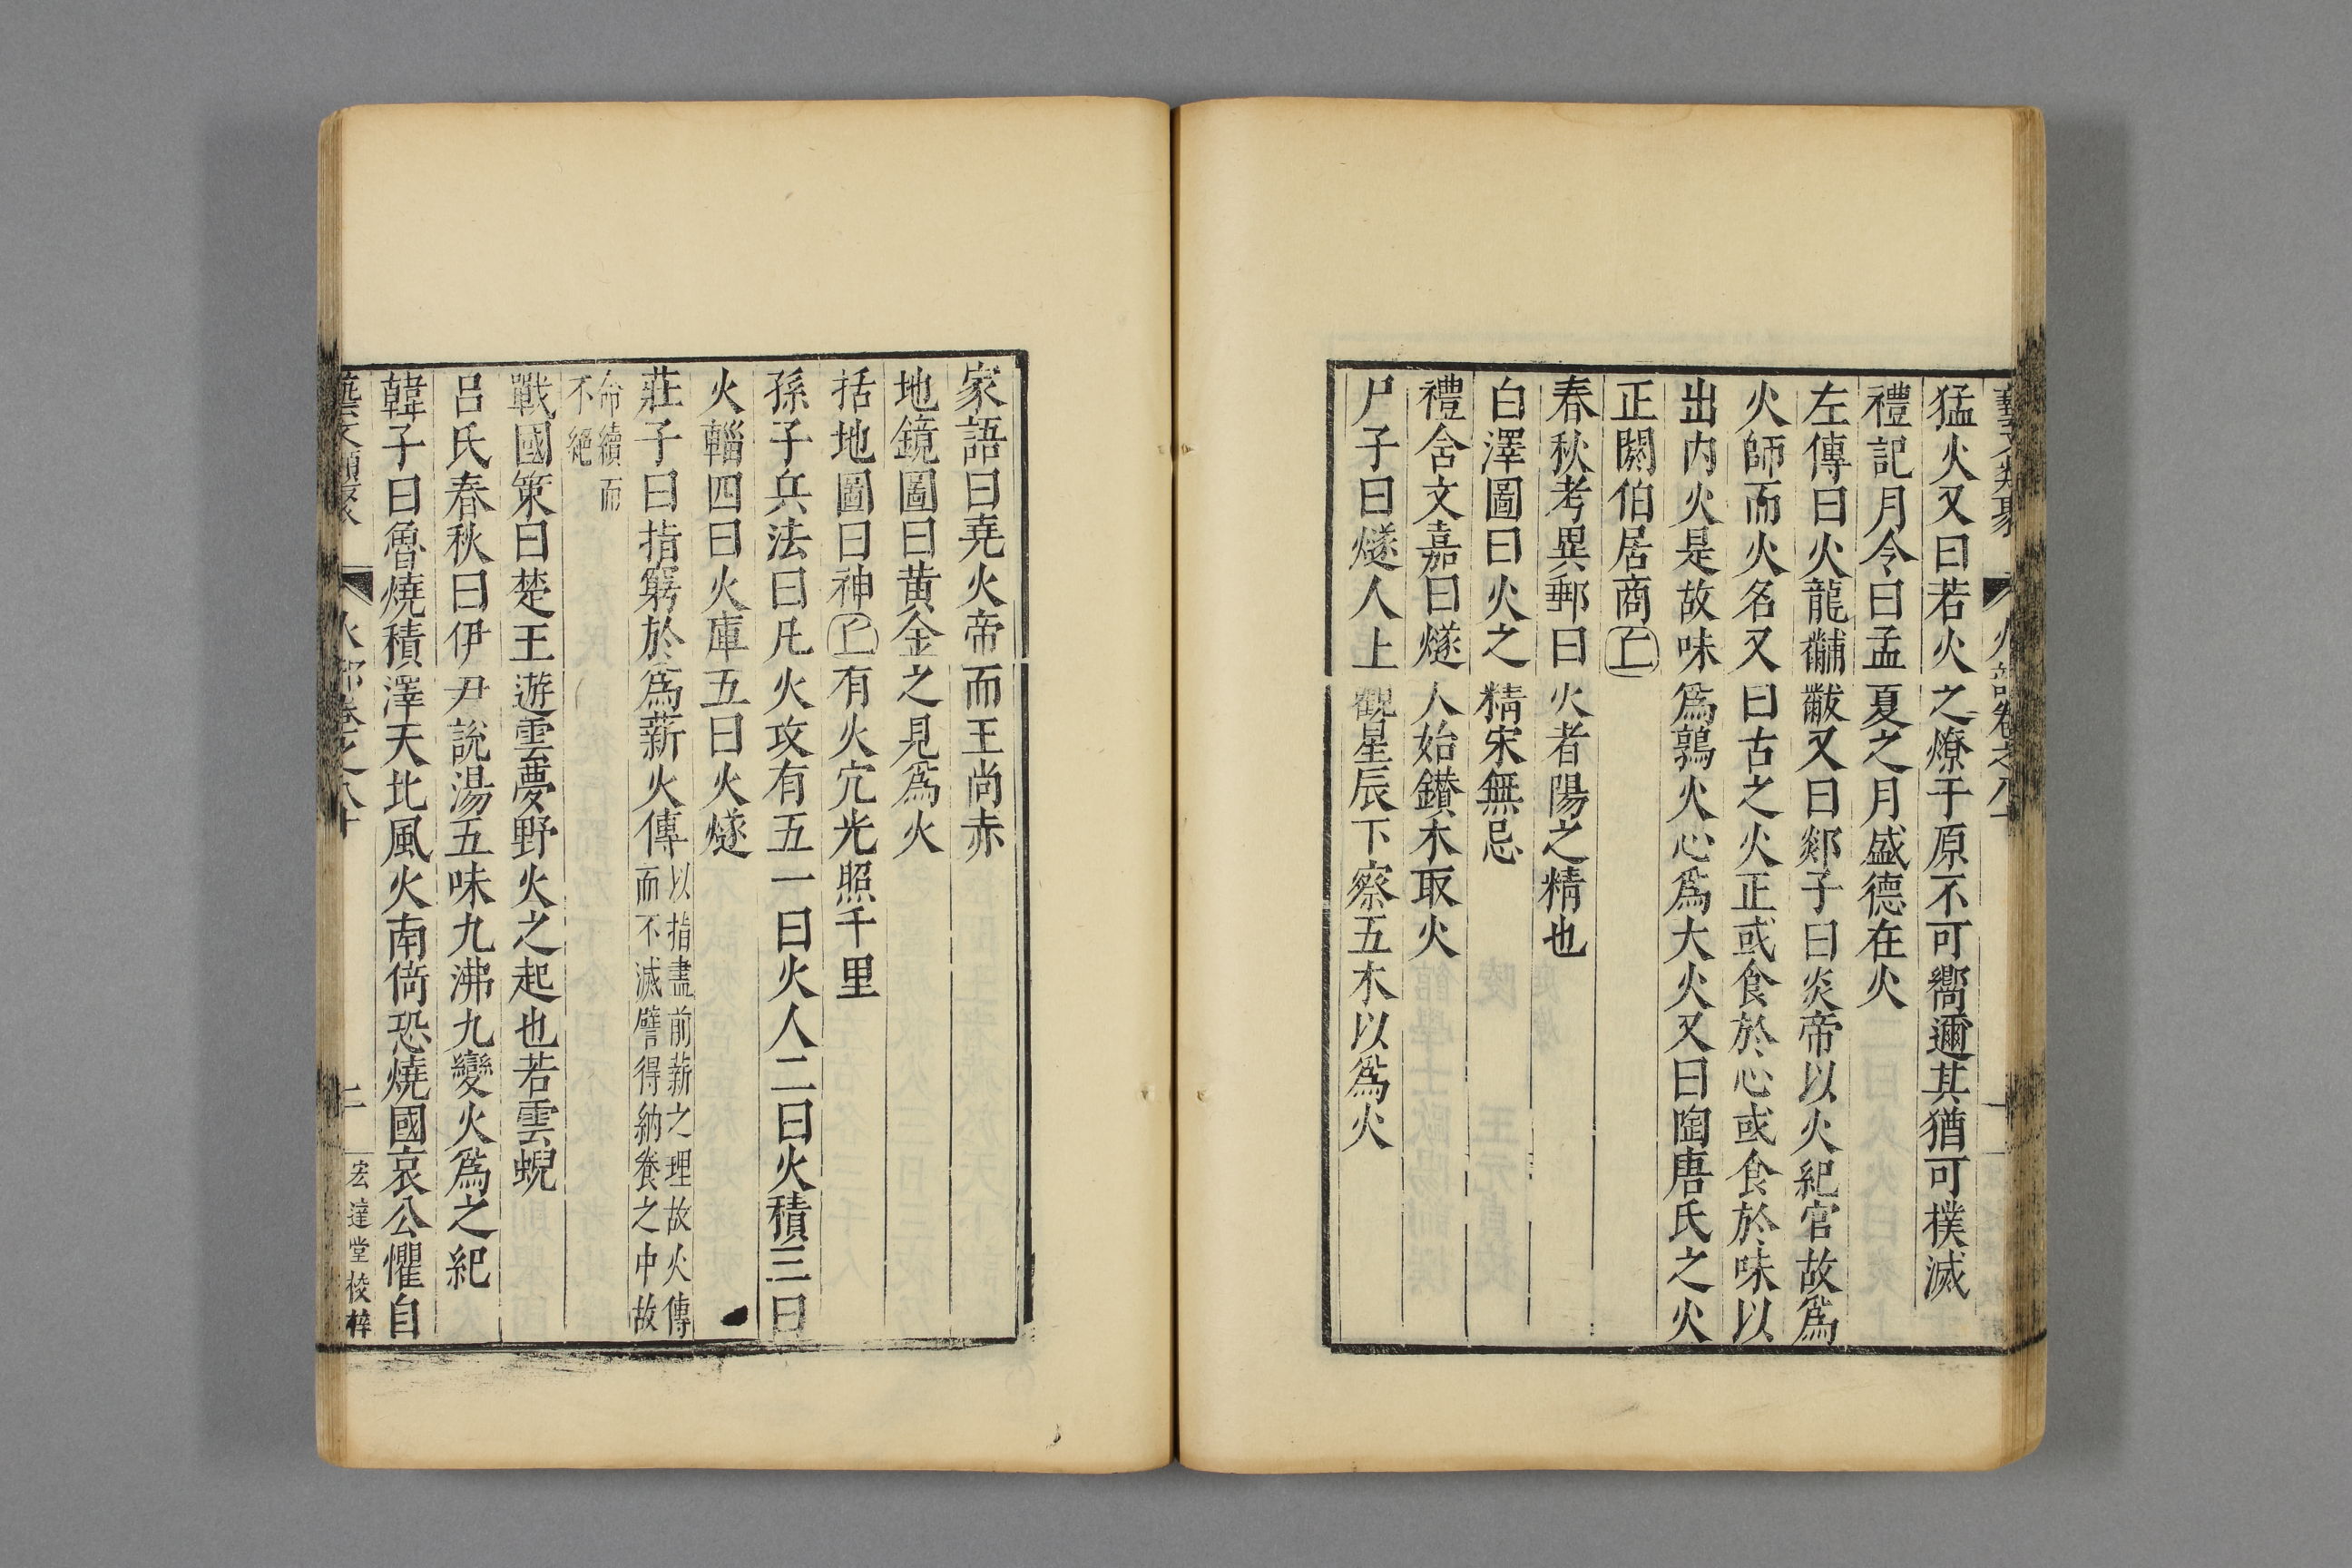 藝文類聚 火部卷之八十
猛火又曰若火之燎于原不可嚮邇其猶可撲滅
禮記月令曰孟夏之月盛德在火
左傳曰火龍黼黻又曰郯子曰炎帝以火紀官故爲
火師而火名又曰古之火正或食於心或食於味以
出内火是故味爲鶉火心爲大火又曰陶唐氏之火
正閼伯居商丘
春秋考異郵曰火者陽之精也
白澤圖曰火之精宋無忌
禮含文嘉曰燧人始鑚木取火
尸子曰燧人上觀星辰下察五木以爲火
家語曰堯火帝而王尚赤
地鏡圖曰黄金之見爲火
括地圖曰神丘有火穴光照千里
孫子兵法曰凡火攻有五一曰火人二曰火積三曰
火輜四曰火庫五曰火燧
莊子曰指窮於爲薪火傳以指盡前薪之理故火傳
而不滅譬得納養之中故
命續而
不絕
戰國策曰楚王遊雲夢野火之起也若雲蜺
吕氏春秋曰伊尹說湯五味九沸九變火爲之紀
韓子曰魯燒積澤天北風火南倚恐燒國哀公懼自
藝文類聚 火部卷之八十 二 宏達堂校梓